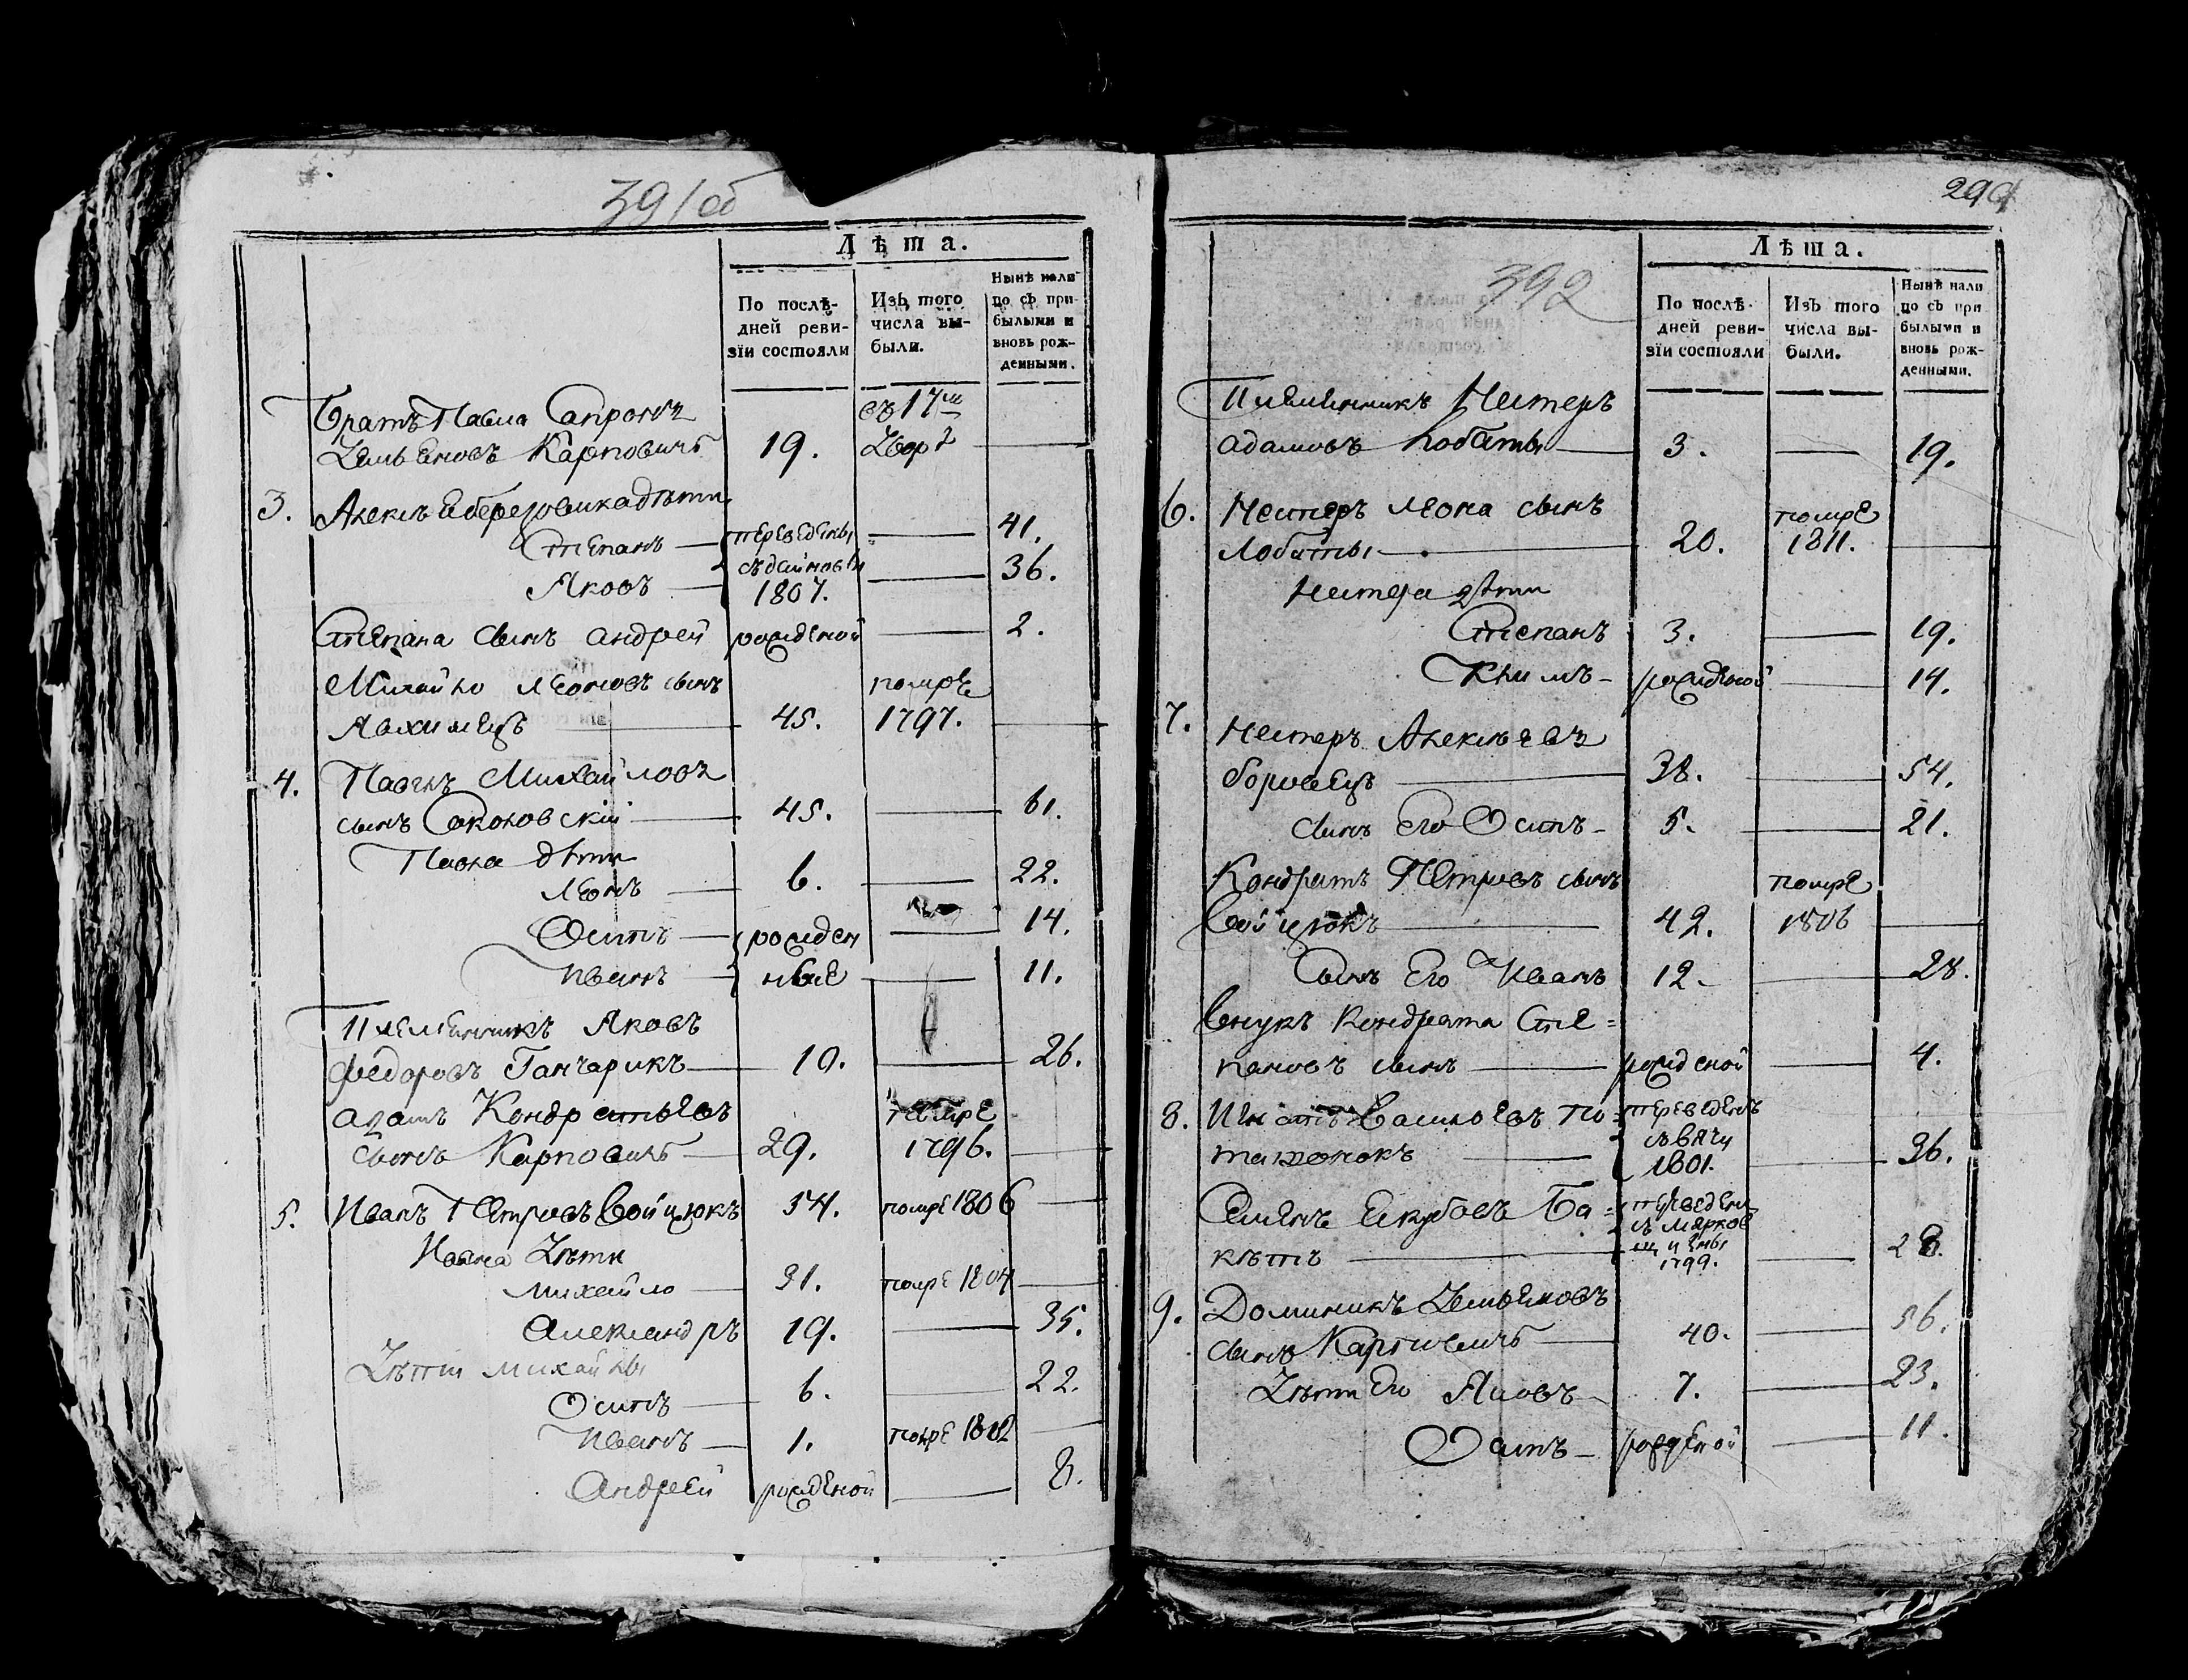 391об
Лѣта.
По послѣ-
дней реви-
зіи состояли
Изъ того
числа вы-
были.
Нынѣ нали
цо съ при-
былыми и
вновь рож-
денными.
Братъ Павла
Карповичъ 19.
3.
Степанъ переведены 41.
Яковъ 1807. 36.
Степана сынъ андрей рожденой 2.
Михайло леоновъ сынъ помре
45. 1797.
4. Павелъ Михайловъ
сынъ Соколовскій 45. 61.
Павла дѣти
леонъ 6. 22.
Осипъ рожден 14.
иванъ ные 11.
Племенникъ Яковъ
федоровъ Ганчарикъ 10. 26.
адамъ Кондратьевъ помре
сынъ Карповичъ 29. 1796.
5. Иванъ Петровъ Войцюкъ 54. помре 1806
Ивана Дѣти
михайло 31. помре 1804
Александръ 19. 35.
Дѣти михайлы
Осипъ 6. 22.
иванъ 1. помре 1802
Андрей рожденой 8.
299
392
Лѣта.
По послѣ-
дней реви-
зіи состояли
Изъ того
числа вы-
были.
Нынѣ нали
цо съ при
былыми и
вновь рож-
денными.
Племенникъ Нестеръ
адамовъ Лобаты 3. 19.
6. Нестеръ леона сынъ помре
Лобаты 20. 1811.
Нестера дѣти
Степанъ 3. 19.
Климъ рожденой 14.
7. Нестеръ Алексѣевъ
боровецъ 38. 54.
сынъ его Осипъ 5. 21.
Кондратъ Петровъ сынъ помре
Войцюкъ 42. 1806
Сынъ Его Иванъ 12. 28.
Внукъ Кондрата Сте=
пановъ сынъ рожденой 4.
8. Васильевъ По= переведенъ
1801. 36.
Семенъ Якубовъ Ба= переведенъ
1799. 28.
9. Доминикъ Демьяновъ
сынъ Карповичъ 40. 56.
Дѣти Его Яковъ 7. 23.
Осипъ рожденой 11.